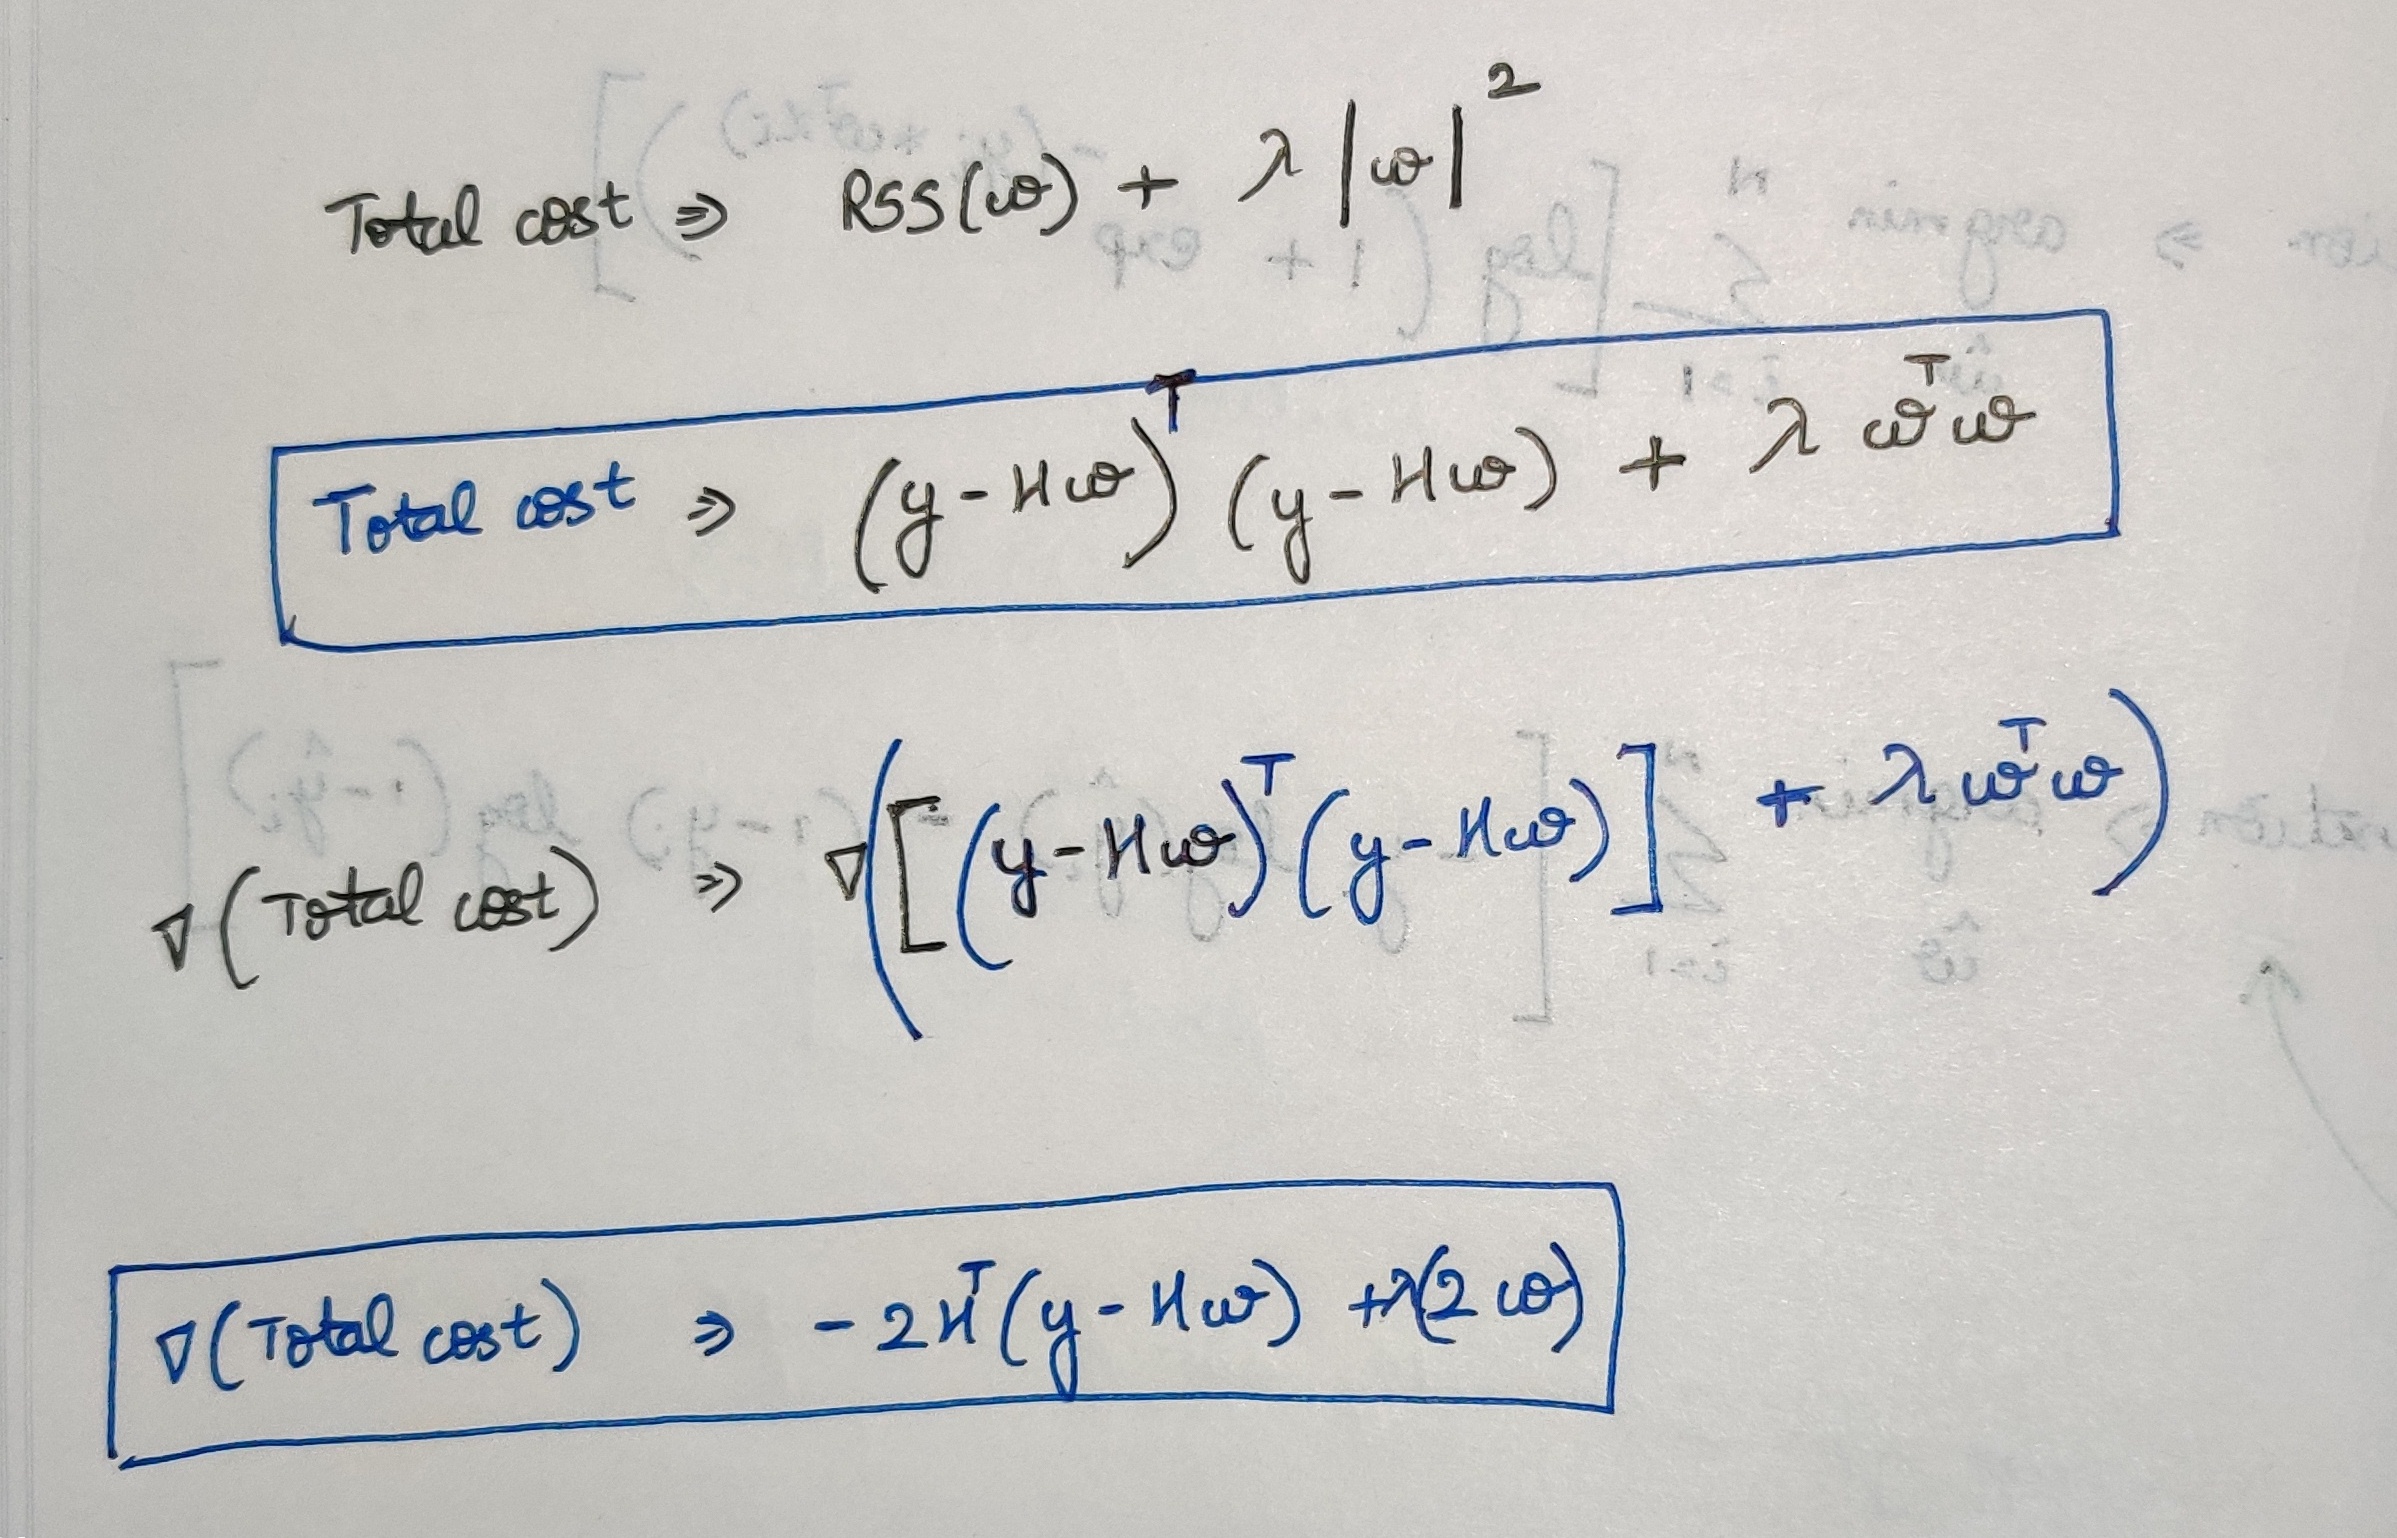 Total cost ⇒ RSS(ω) + λ|ω|²
Total cost ⇒ (y-Hω)ᵀ (y-Hω) + λ ωᵀω
∇(Total cost) ⇒ ∇([(y-Hω)ᵀ(y-Hω)] + λωᵀω)
∇(Total cost) ⇒ -2Hᵀ(y-Hω) +λ(2ω)